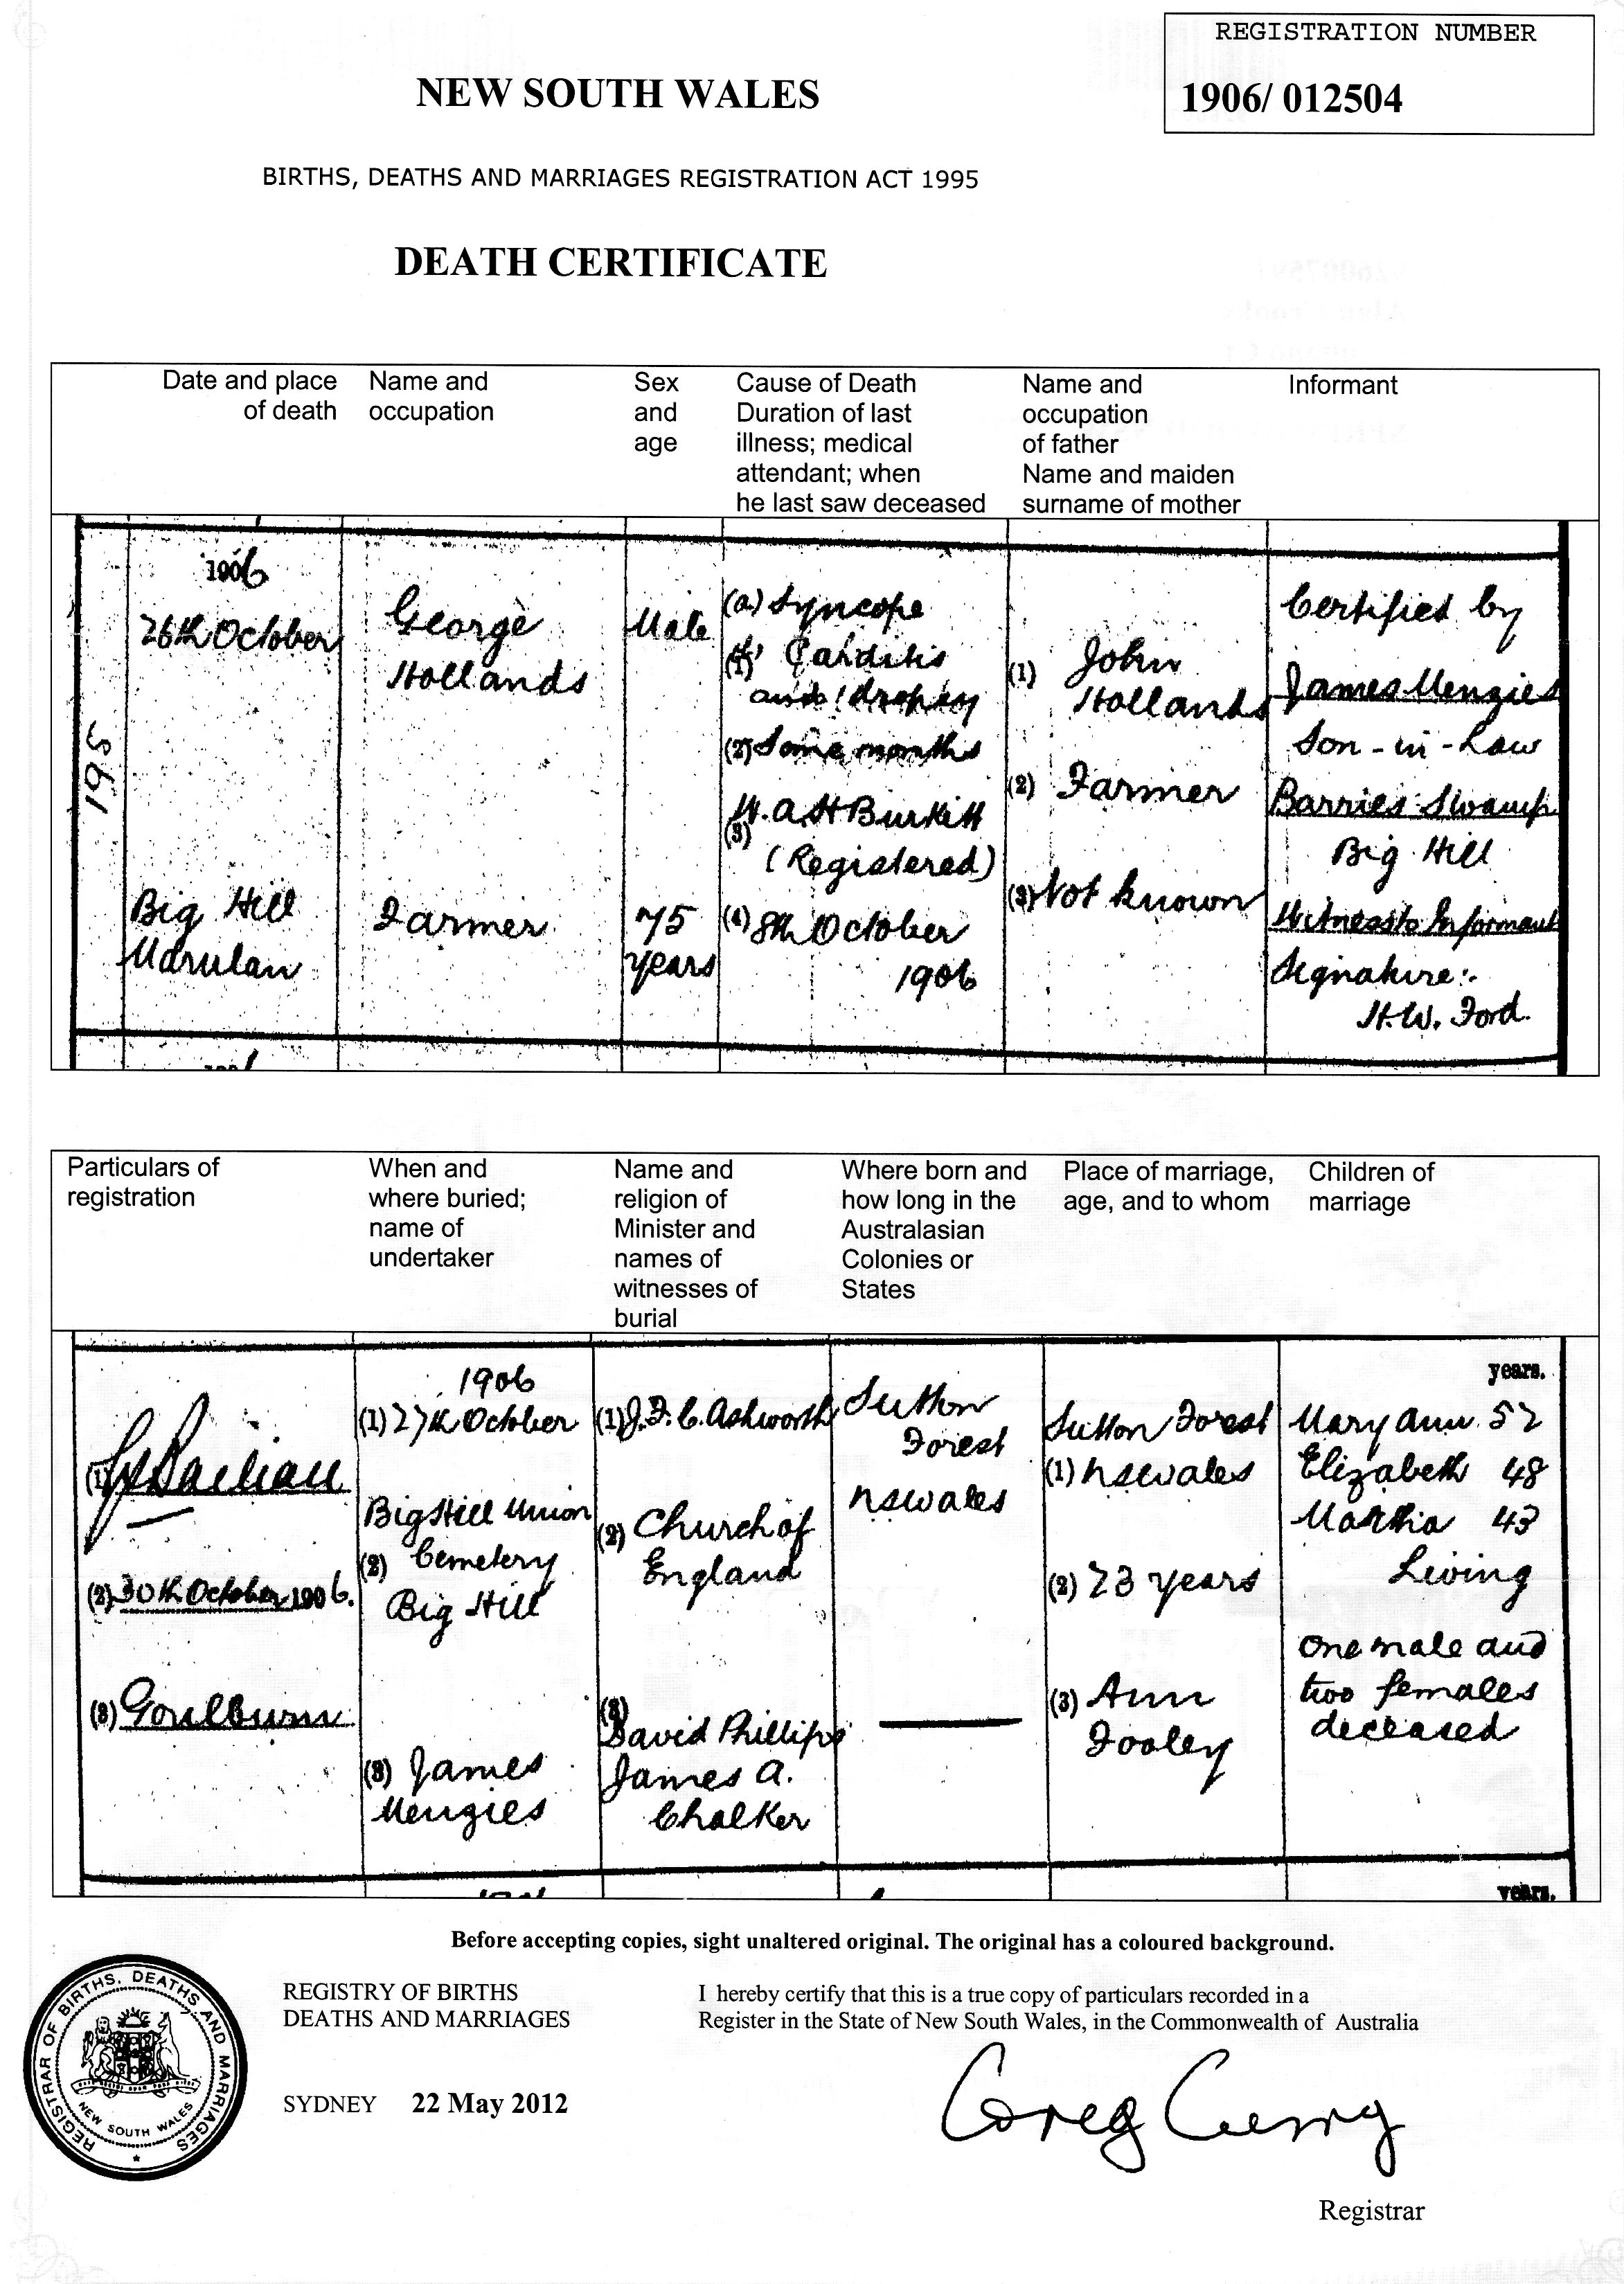 REGISTRATION NUMBER
1906/ 012504
NEW SOUTH WALES
BIRTHS, DEATHS AND MARRIAGES REGISTRATION ACT 1995
DEATH CERTIFICATE
Date and place of death
Name and occupation
Sex and age
Cause of Death
Duration of last illness; medical attendant; when he last saw deceased
Name and occupation of father
Name and maiden surname of mother
Informant
195
1906
26th October
Big Hill
Marulan
George
Hollands
Farmer
Male
75
years
(a) Syncope
(1) Carditis
and dropsy
(2) Some months
W. A. H Burkitt
(3)
(Registered)
(4) 8th October
1906
(1) John
Hollands
(2) Farmer
(3) Not known
Certified by
James Menzies
Son-in-Law
Barries Swamp
Big Hill
Witness to Informant
Signature:-
H. W. Ford.
Particulars of registration
When and where buried; name of undertaker
Name and religion of Minister and names of witnesses of burial
Where born and how long in the Australasian Colonies or States
Place of marriage, age, and to whom
Children of marriage
(1)
(2) 30th October 1906.
(3) Goulburn
1906
(1) 27th October
Big Hill Union
(2) Cemetery
Big Hill
(3) James
Menzies
(1) J. F. C. Ashworth
(2) Church of
England
(3)
David Phillips
James A.
Chalker
Sutton
Forest
NSWales
Sutton Forest
(1) NSWales
(2) 23 years
(3) Ann
Fooley
years.
Mary Ann 52
Elizabeth 48
Martha 43
Living
One male and
two females
deceased
years.
Before accepting copies, sight unaltered original. The original has a coloured background.
REGISTRAR OF BIRTHS, DEATHS AND MARRIAGES
NEW SOUTH WALES
REGISTRY OF BIRTHS
DEATHS AND MARRIAGES
SYDNEY 22 May 2012
I hereby certify that this is a true copy of particulars recorded in a
Register in the State of New South Wales, in the Commonwealth of Australia
Greg Curry
Registrar